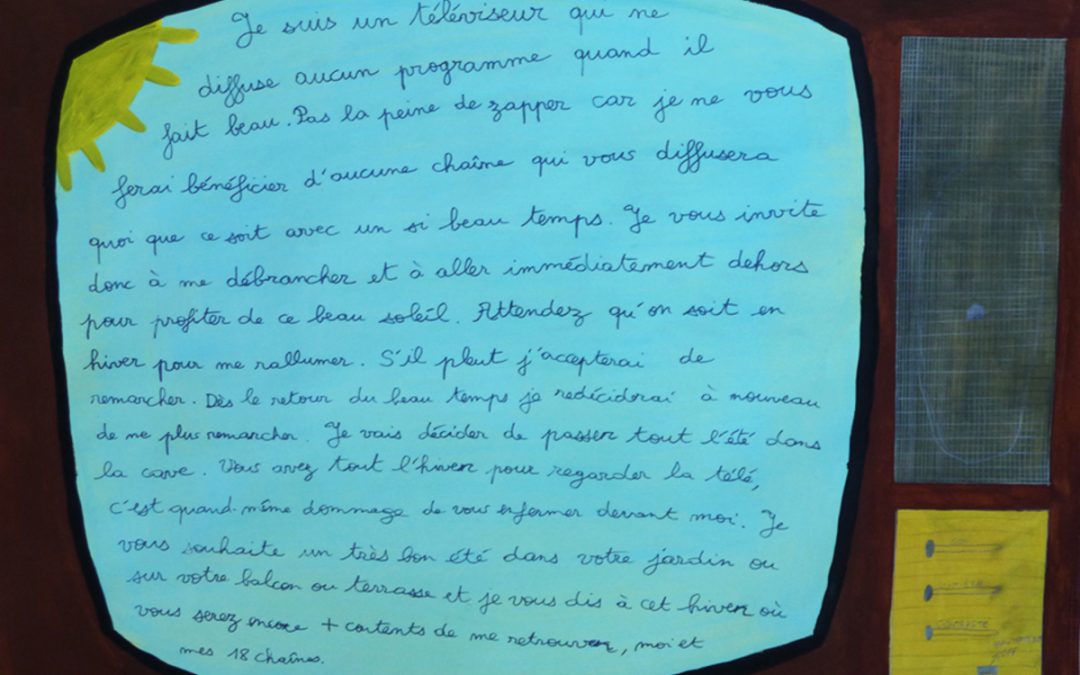 Je suis un téléviseur qui ne
diffuse aucun programme quand il
fait beau. Pas la peine de zapper car je ne vous
ferai bénéficier d'aucune chaîne qui vous diffusera
quoi que ce soit avec un si beau temps. Je vous invite
donc à me débrancher et à aller immédiatement dehors
pour profiter de ce beau soleil. Attendez qu'on soit en
hiver pour me rallumer. S'il pleut j'accepterai de
remarcher. Dès le retour du beau temps je redéciderai à nouveau
de me plus remarcher. Je vais décider de passer tout l'été dans
la cave. Vous avez tout l'hiver pour regarder la télé,
c'est quand-même dommage de vous enfermer devant moi. Je
vous souhaite un très bon été dans votre jardin ou
sur votre balcon ou terrasse et je vous dis à cet hiver où
vous serez encore + contents de me retrouver, moi et
mes 18 chaînes.
CONTRASTE